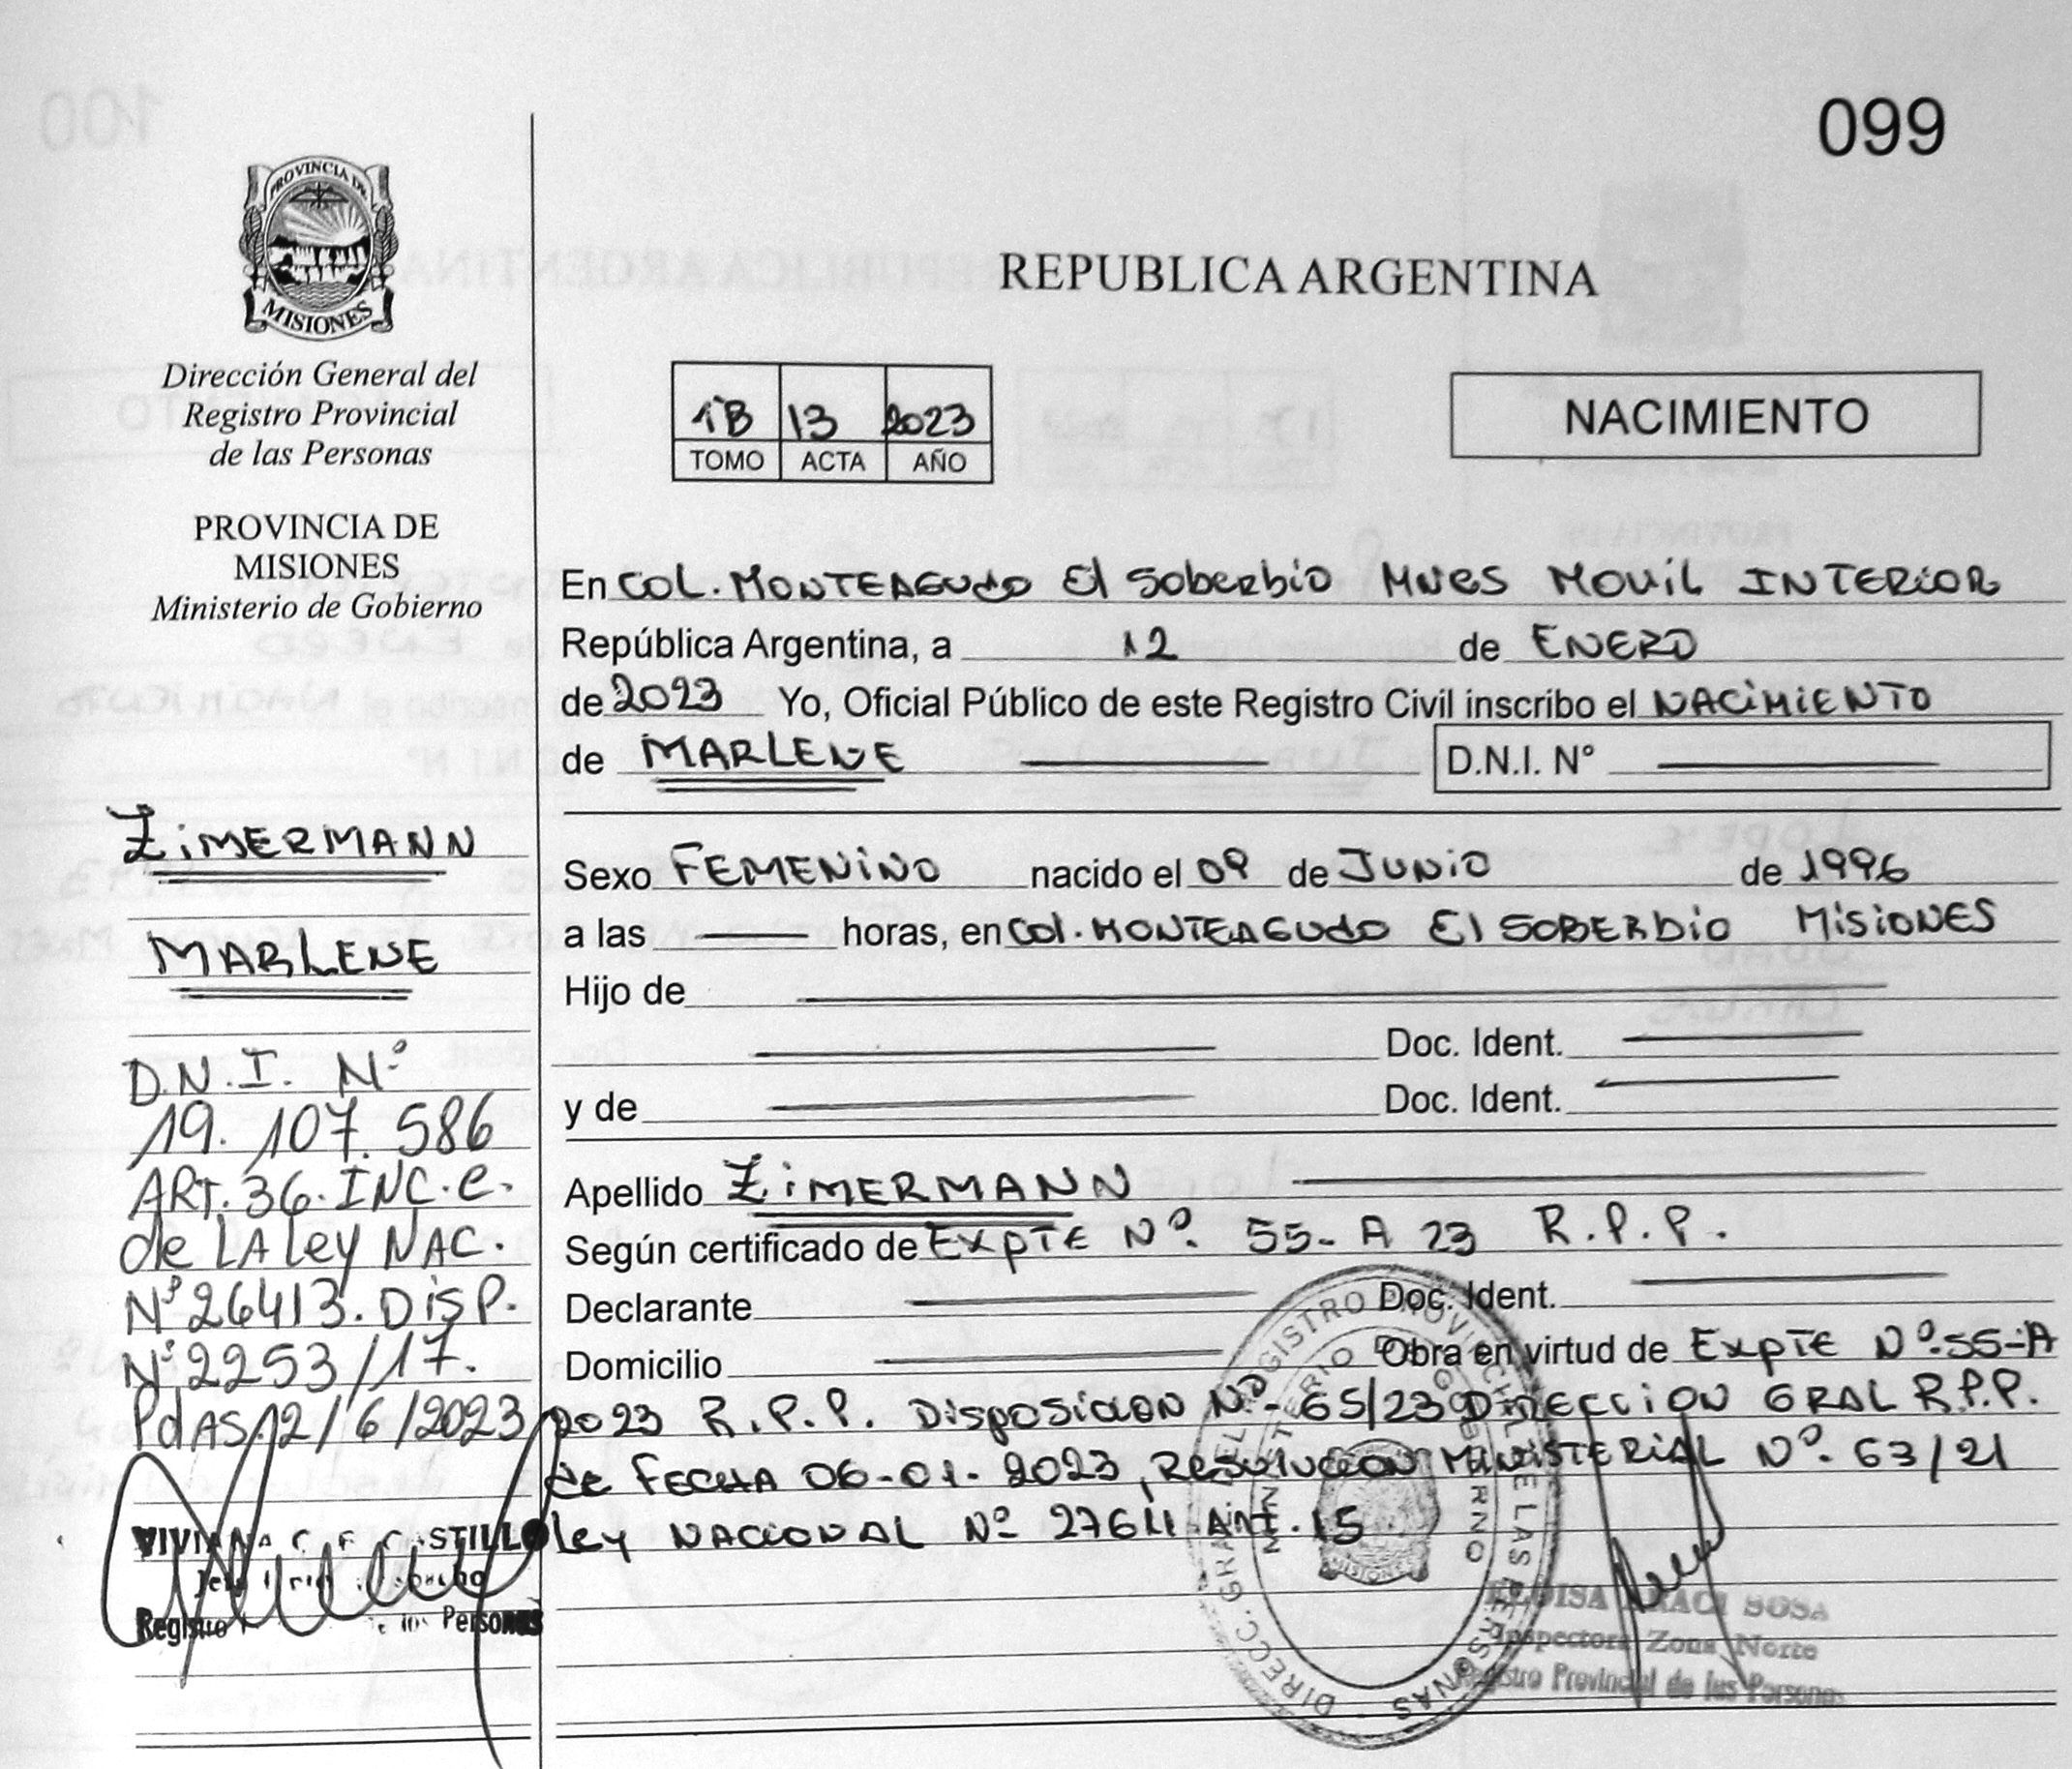 099
PROVINCIA DE
MISIONES
Dirección General del
Registro Provincial
de las Personas
PROVINCIA DE
MISIONES
Ministerio de Gobierno
REPUBLICA ARGENTINA
1B 13 2023
TOMO ACTA AÑO
NACIMIENTO
En COL. MONTEAGUDO El SOBERBIO MNES MOVIL INTERIOR
República Argentina, a 12 de ENERO
de 2023 Yo, Oficial Público de este Registro Civil inscribo el NACIMIENTO
de MARLENE D.N.I. N°
Sexo FEMENINO nacido el 09 de JUNIO de 1996
a las horas, en Col. MONTEAGUDO El SOBERBIO MISIONES
Hijo de
Doc. Ident.
y de Doc. Ident.
Apellido ZIMERMANN
Según certificado de EXPTE Nº. 55- A 23 R.P.P.
Declarante Doc. Ident.
Domicilio Obra en virtud de EXPTE Nº.55-A
2023 R.P.P. DISPOSICION Nº- 65/23 DIRECCION GRAL R.P.P.
de FECHA 06-01-2023, RESOLUCION MINISTERIAL Nº. 63/21
ley NACIONAL Nº 27611 ART. 15
ZIMERMANN
MARLENE
D.N.I. Nº
19.107.586
ART. 36. INC. C.
de LA Ley NAC.
Nº 26413. DISP.
Nº 2253/17.
PdAS. 12/6/2023
VIVIANA CASTILLO
Personas
DIRECC. GRAL DEL REGISTRO PROVINCIAL DE LAS PERSONAS
MINISTERIO DE GOBIERNO
MISIONES
ELOISA ARACI SOSA
Inspectora Zona Norte
Registro Provincial de las Personas